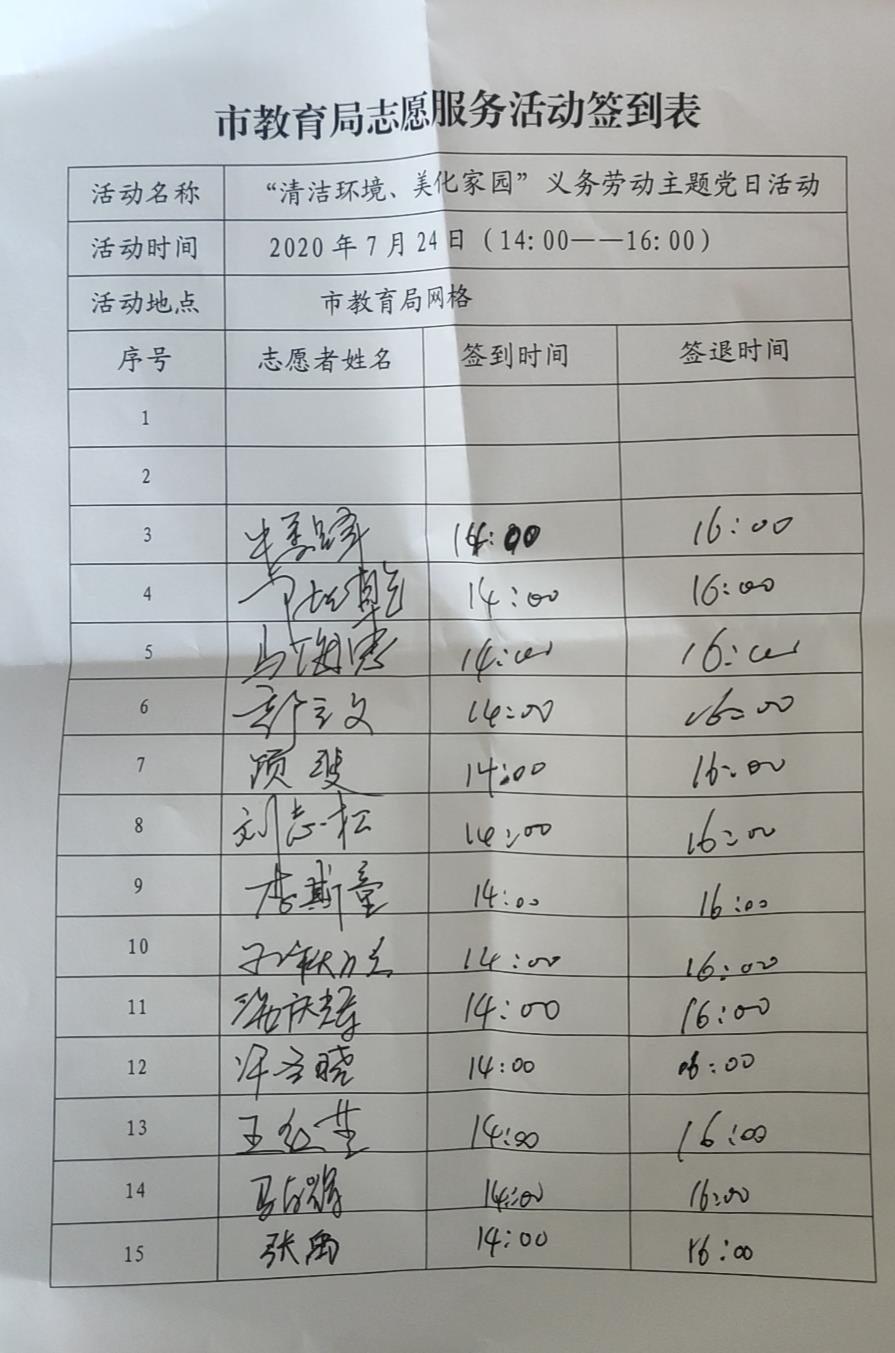 市教育局志愿服务活动签到表
活动名称 “清洁环境、美化家园”义务劳动主题党日活动
活动时间 2020年7月24日(14:00——16:00)
活动地点 市教育局网格
序号 志愿者姓名 签到时间 签退时间
1
2
3 14:00 16:00
4 14:00 16:00
5 14:00 16:00
6 14:00 16:00
7 14:00 16:00
8 刘志松 14:00 16:00
9 李斯童 14:00 16:00
10 14:00 16:00
11 14:00 16:00
12 14:00 16:00
13 14:00 16:00
14 14:00 16:00
15 张禹 14:00 16:00